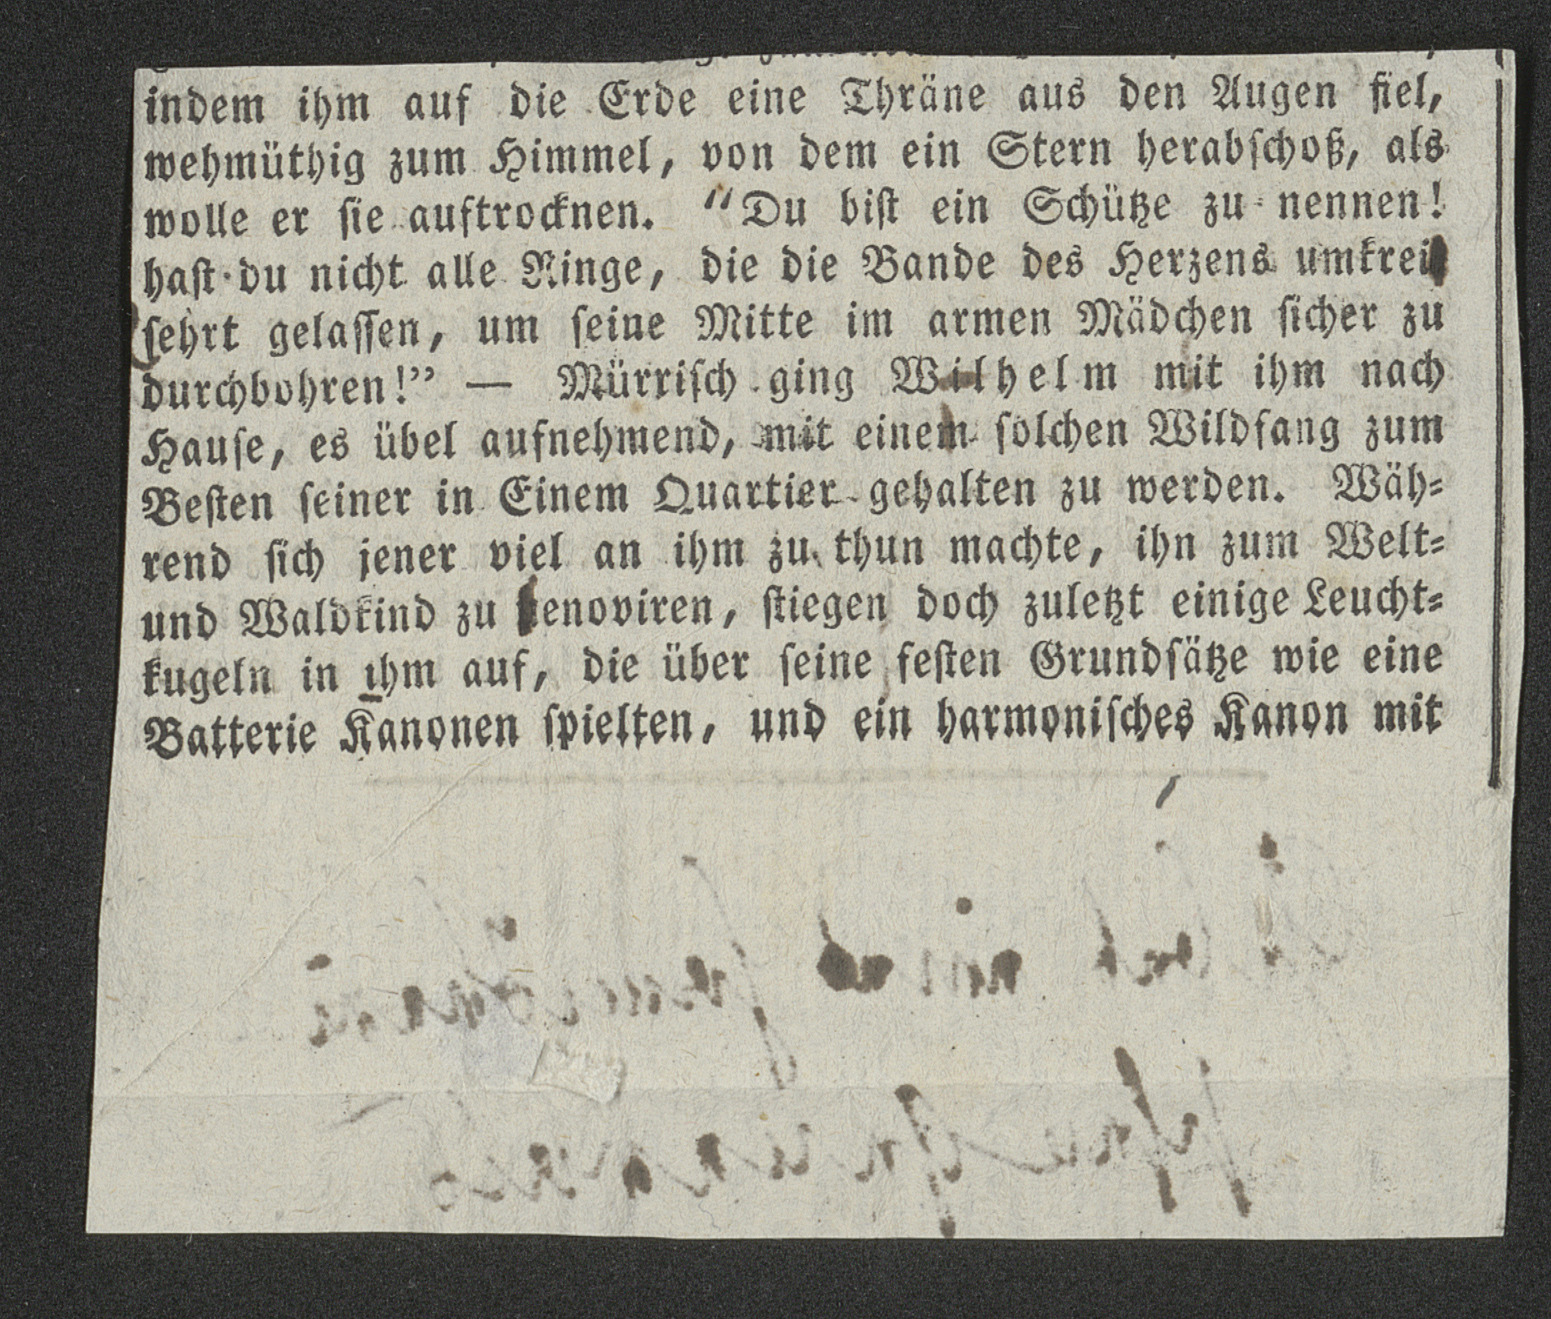 indem ihm auf die Erde eine Thräne aus den Augen fiel,
wehmüthig zum Himmel, von dem ein Stern herabſchoß, als
wolle er ſie auftrocknen. “Du biſt ein Schütze zu nennen!
haſt du nicht alle Ringe, die die Bande des Herzens
ſehrt gelaſſen, um ſeine Mitte im armen Mädchen ſicher zu
durchbohren!” — Mürriſch ging Wilhelm mit ihm nach
Hauſe, es übel aufnehmend, mit einem ſolchen Wildfang zum
Beſten ſeiner in Einem Quartier gehalten zu werden. Wäh-
rend ſich jener viel an ihm zu thun machte, ihn zum Welt-
und Waldkind zu renoviren, ſtiegen doch zuletzt einige Leucht-
kugeln in ihm auf, die über ſeine feſten Grundſätze wie eine
Batterie Kanonen ſpielten, und ein harmoniſches Kanon mit